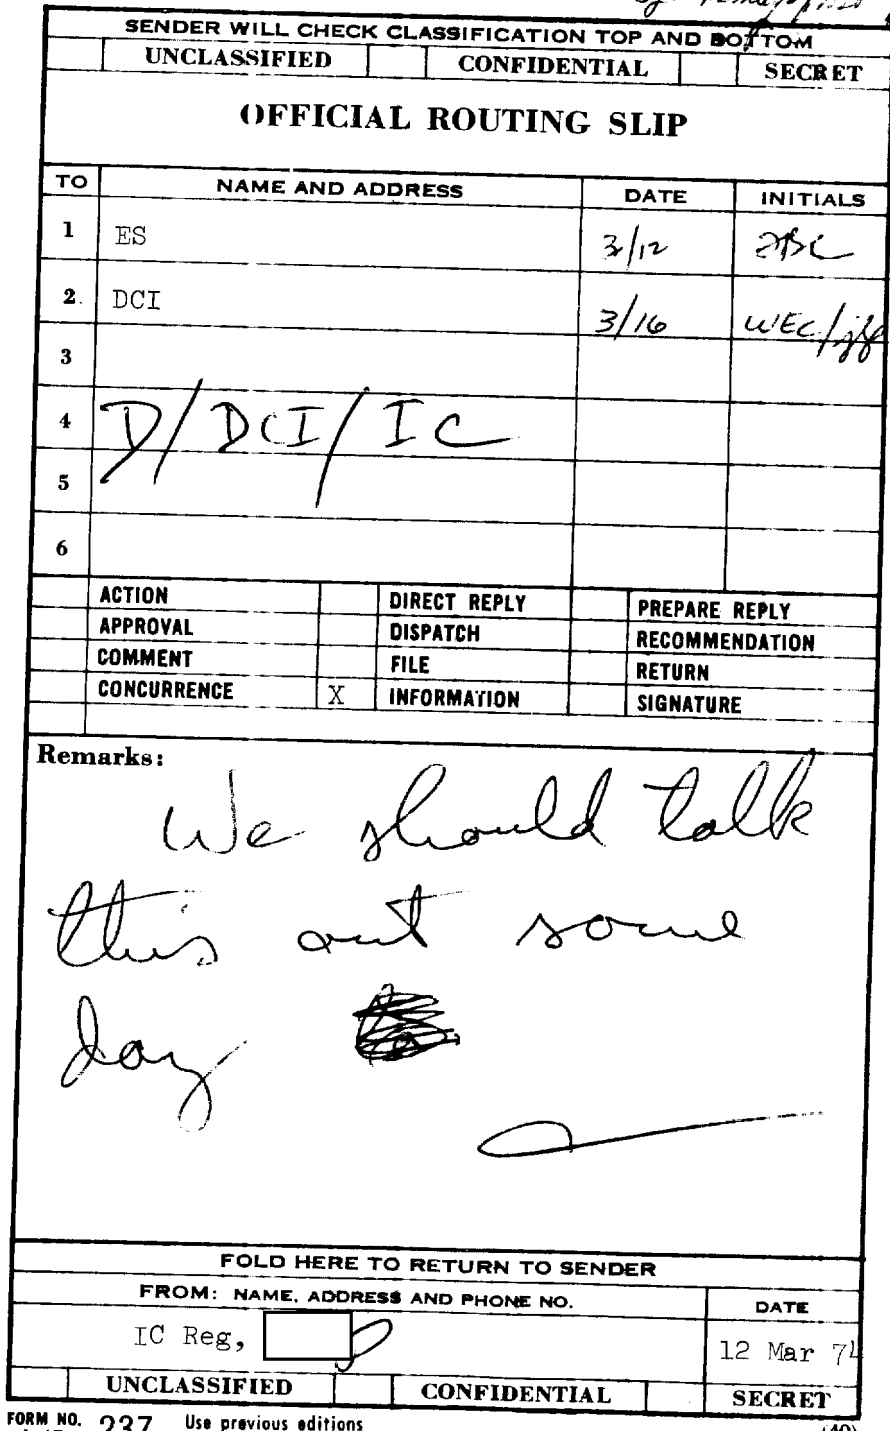 SENDER WILL CHECK CLASSIFICATION TOP AND BOTTOM
UNCLASSIFIED CONFIDENTIAL SECRET
OFFICIAL ROUTING SLIP
TO NAME AND ADDRESS DATE INITIALS
1 ES 3/12
2. DCI 3/16 WEC/
3
4 D/DCI/IC
5
6
ACTION DIRECT REPLY PREPARE REPLY
APPROVAL DISPATCH RECOMMENDATION
COMMENT FILE RETURN
CONCURRENCE X INFORMATION SIGNATURE
Remarks:
We should talk
this out some
day
FOLD HERE TO RETURN TO SENDER
FROM: NAME, ADDRESS AND PHONE NO. DATE
IC Reg, 12 Mar 74
UNCLASSIFIED CONFIDENTIAL SECRET
FORM NO. 237 Use previous editions (40)